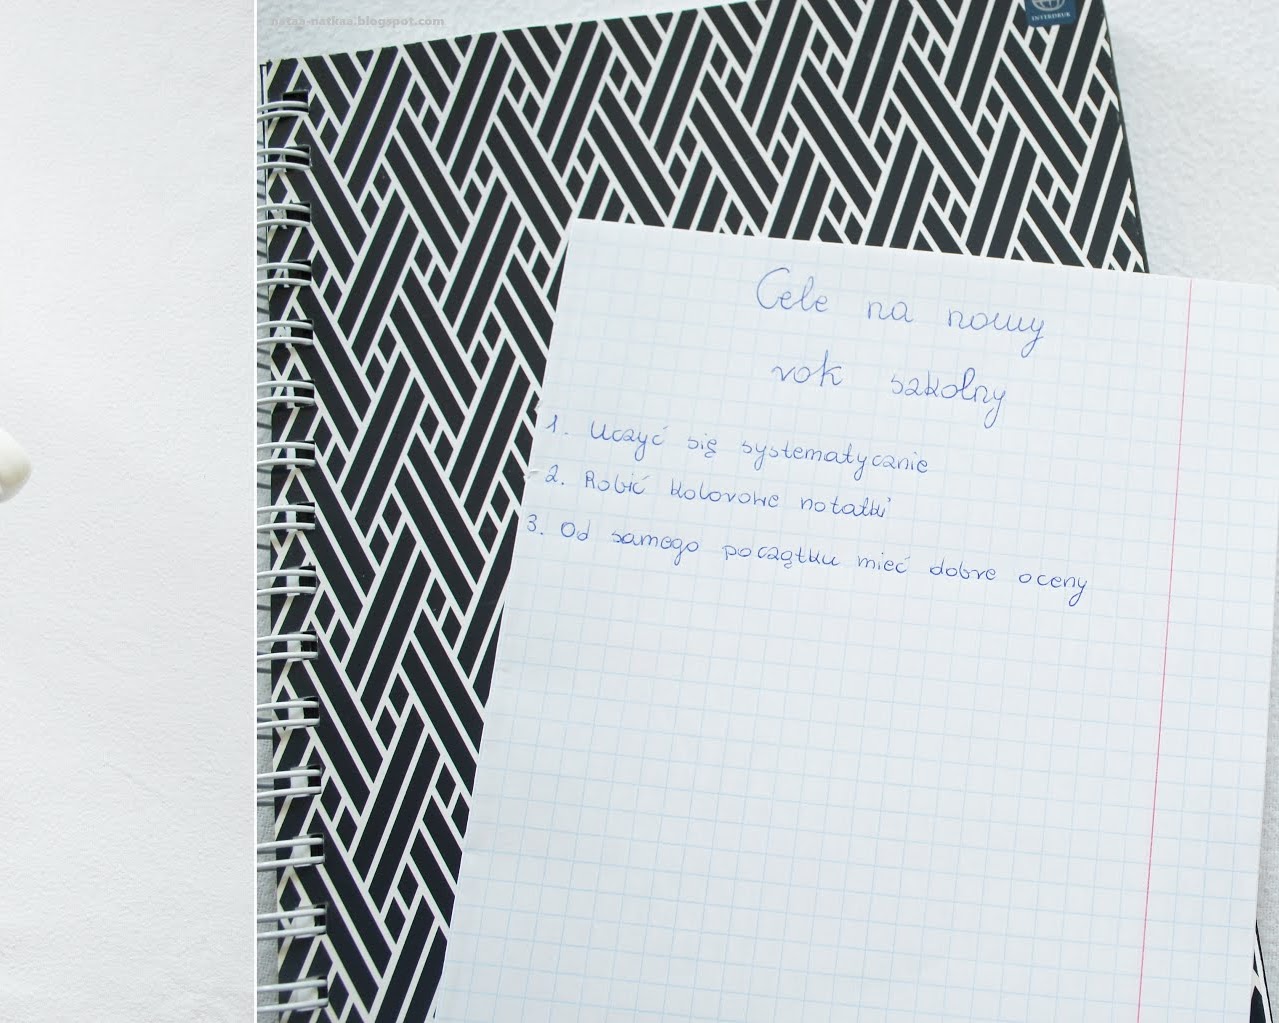 nataa-natkaa.blogspot.com
INTERDRUK
Cele na nowy
rok szkolny
1. Uczyć się systematycznie
2. Robić kolorowe notatki
3. Od samego początku mieć dobre oceny